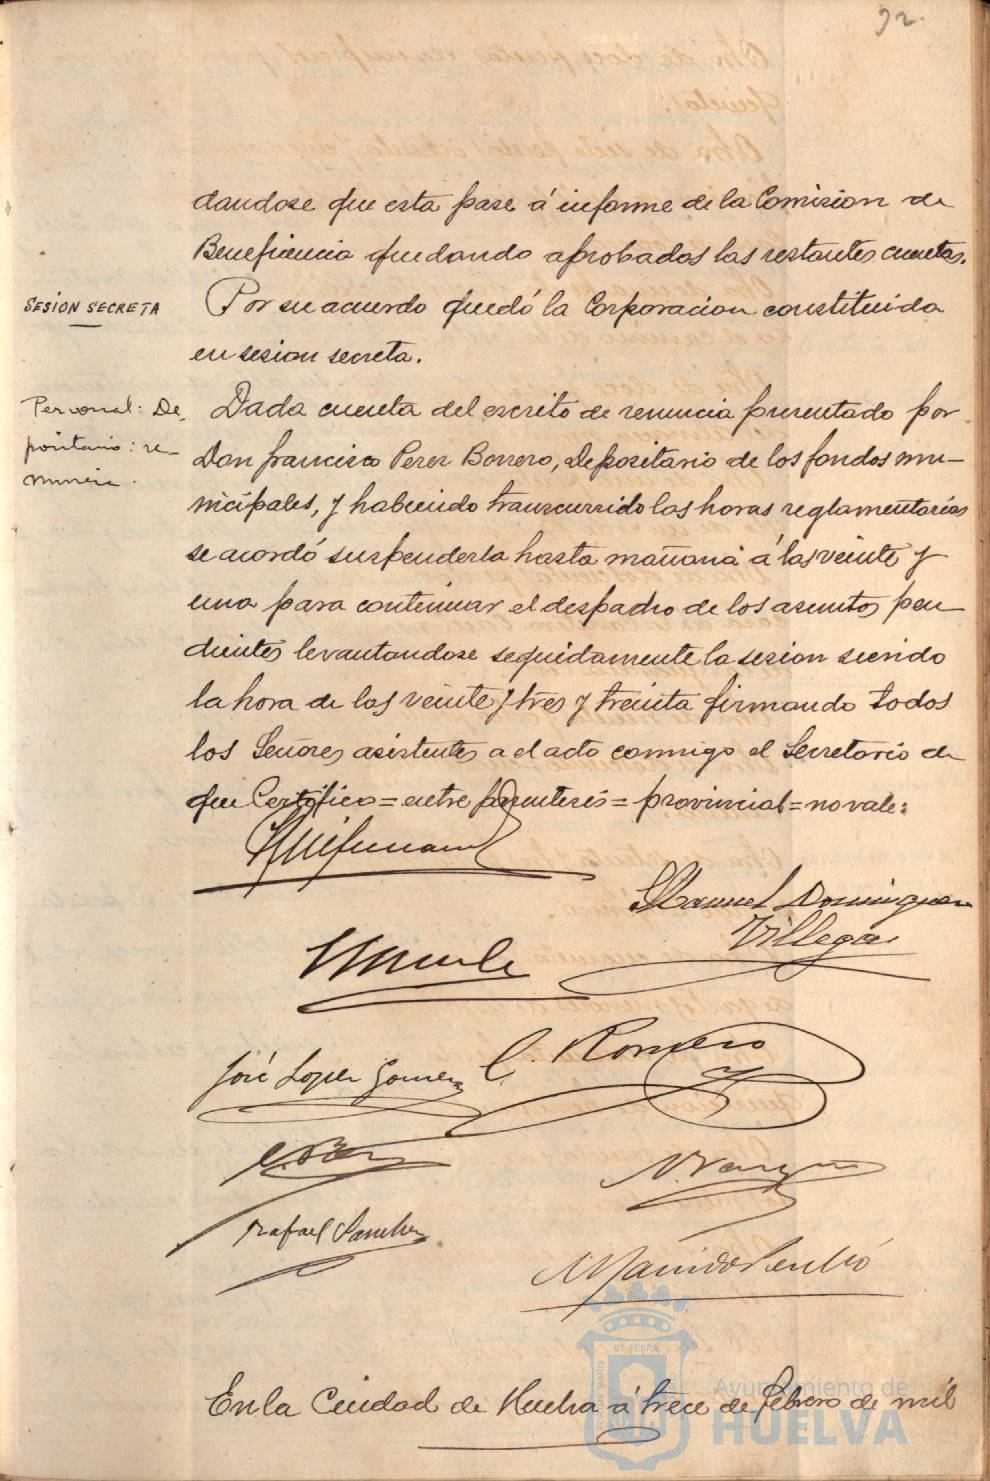 92.
dandose que esta pase á informe de la Comision de
Beneficencia quedando aprobados las restantes cuentas.
SESION SECRETA
Por su acuerdo quedó la Corporacion constituida
en sesion secreta.
Personal: De
positario: re-
nuncia.
Dada cuenta del escrito de renuncia presentado por
Don francisco Perez Borrero, Depositario de los fondos mu-
nicipales, y habiendo transcurrido las horas reglamentarias
se acordó suspenderla hasta mañana á las veinte y
una para continuar el despacho de los asuntos pen-
dientes levantandose seguidamente la sesion siendo
la hora de las veinte y tres y treinta firmando todos
los Señores asistentes a el acto conmigo el Secretario de
que Certifico = entre parentesis = provincial = no vale =
Manuel Dominguez
Villegas
José Lopez Gomez
C. Romero
Rafael Sanchez
En la Ciudad de Huelva á trece de febrero de mil
Ayuntamiento de
HUELVA